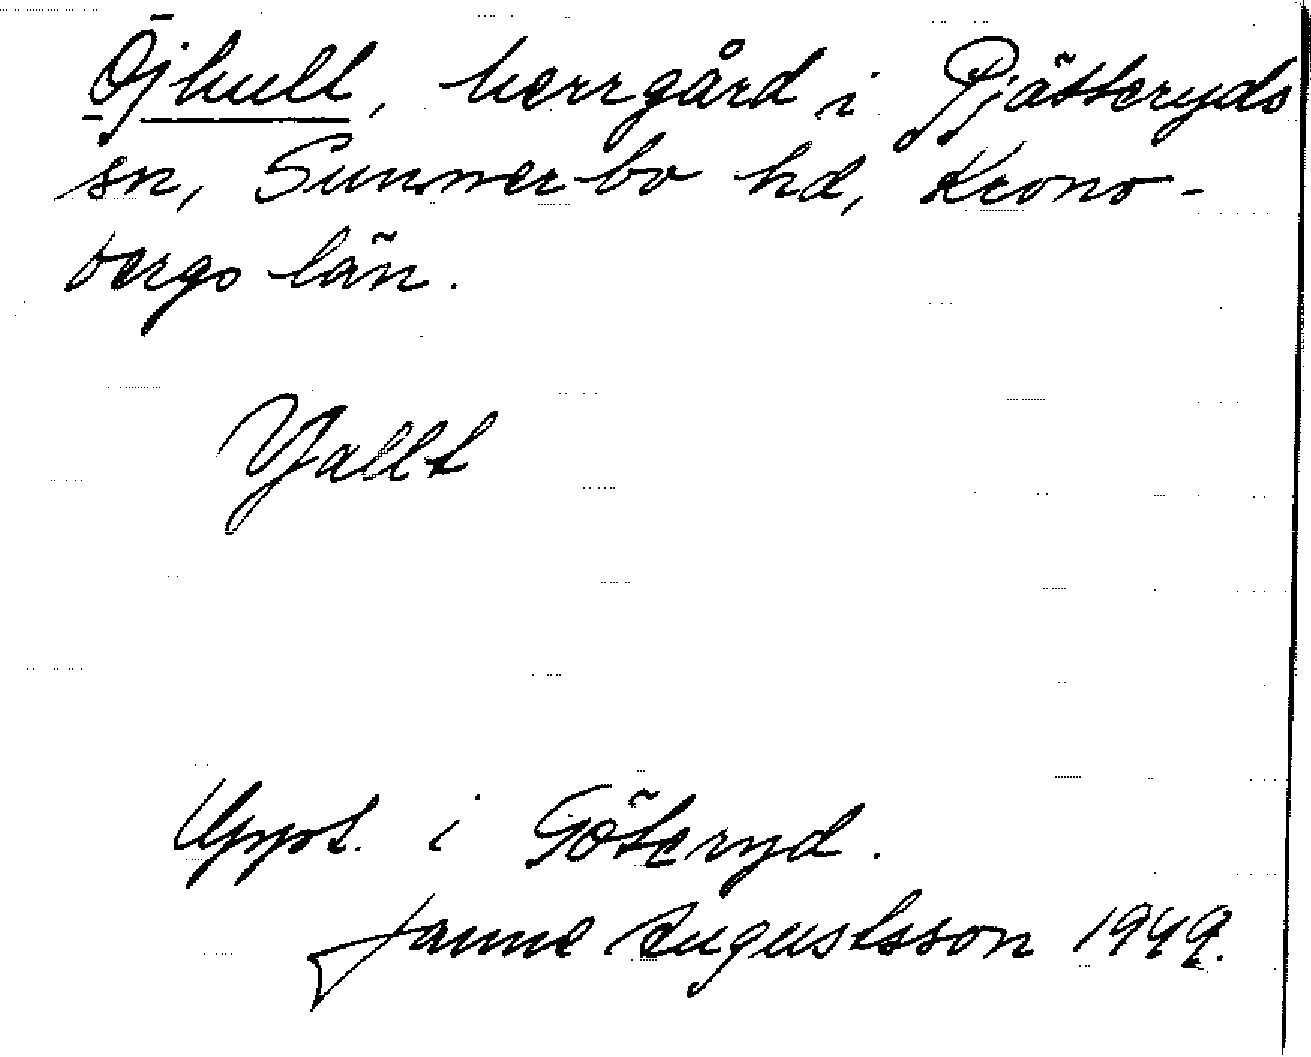 Öjhult, herrgård i Pjätteryds
sn, Sunnerbo hd, Krono-
bergs län.
Yallt
Uppt. i Göteryd.
Janne Augustsson 1949.